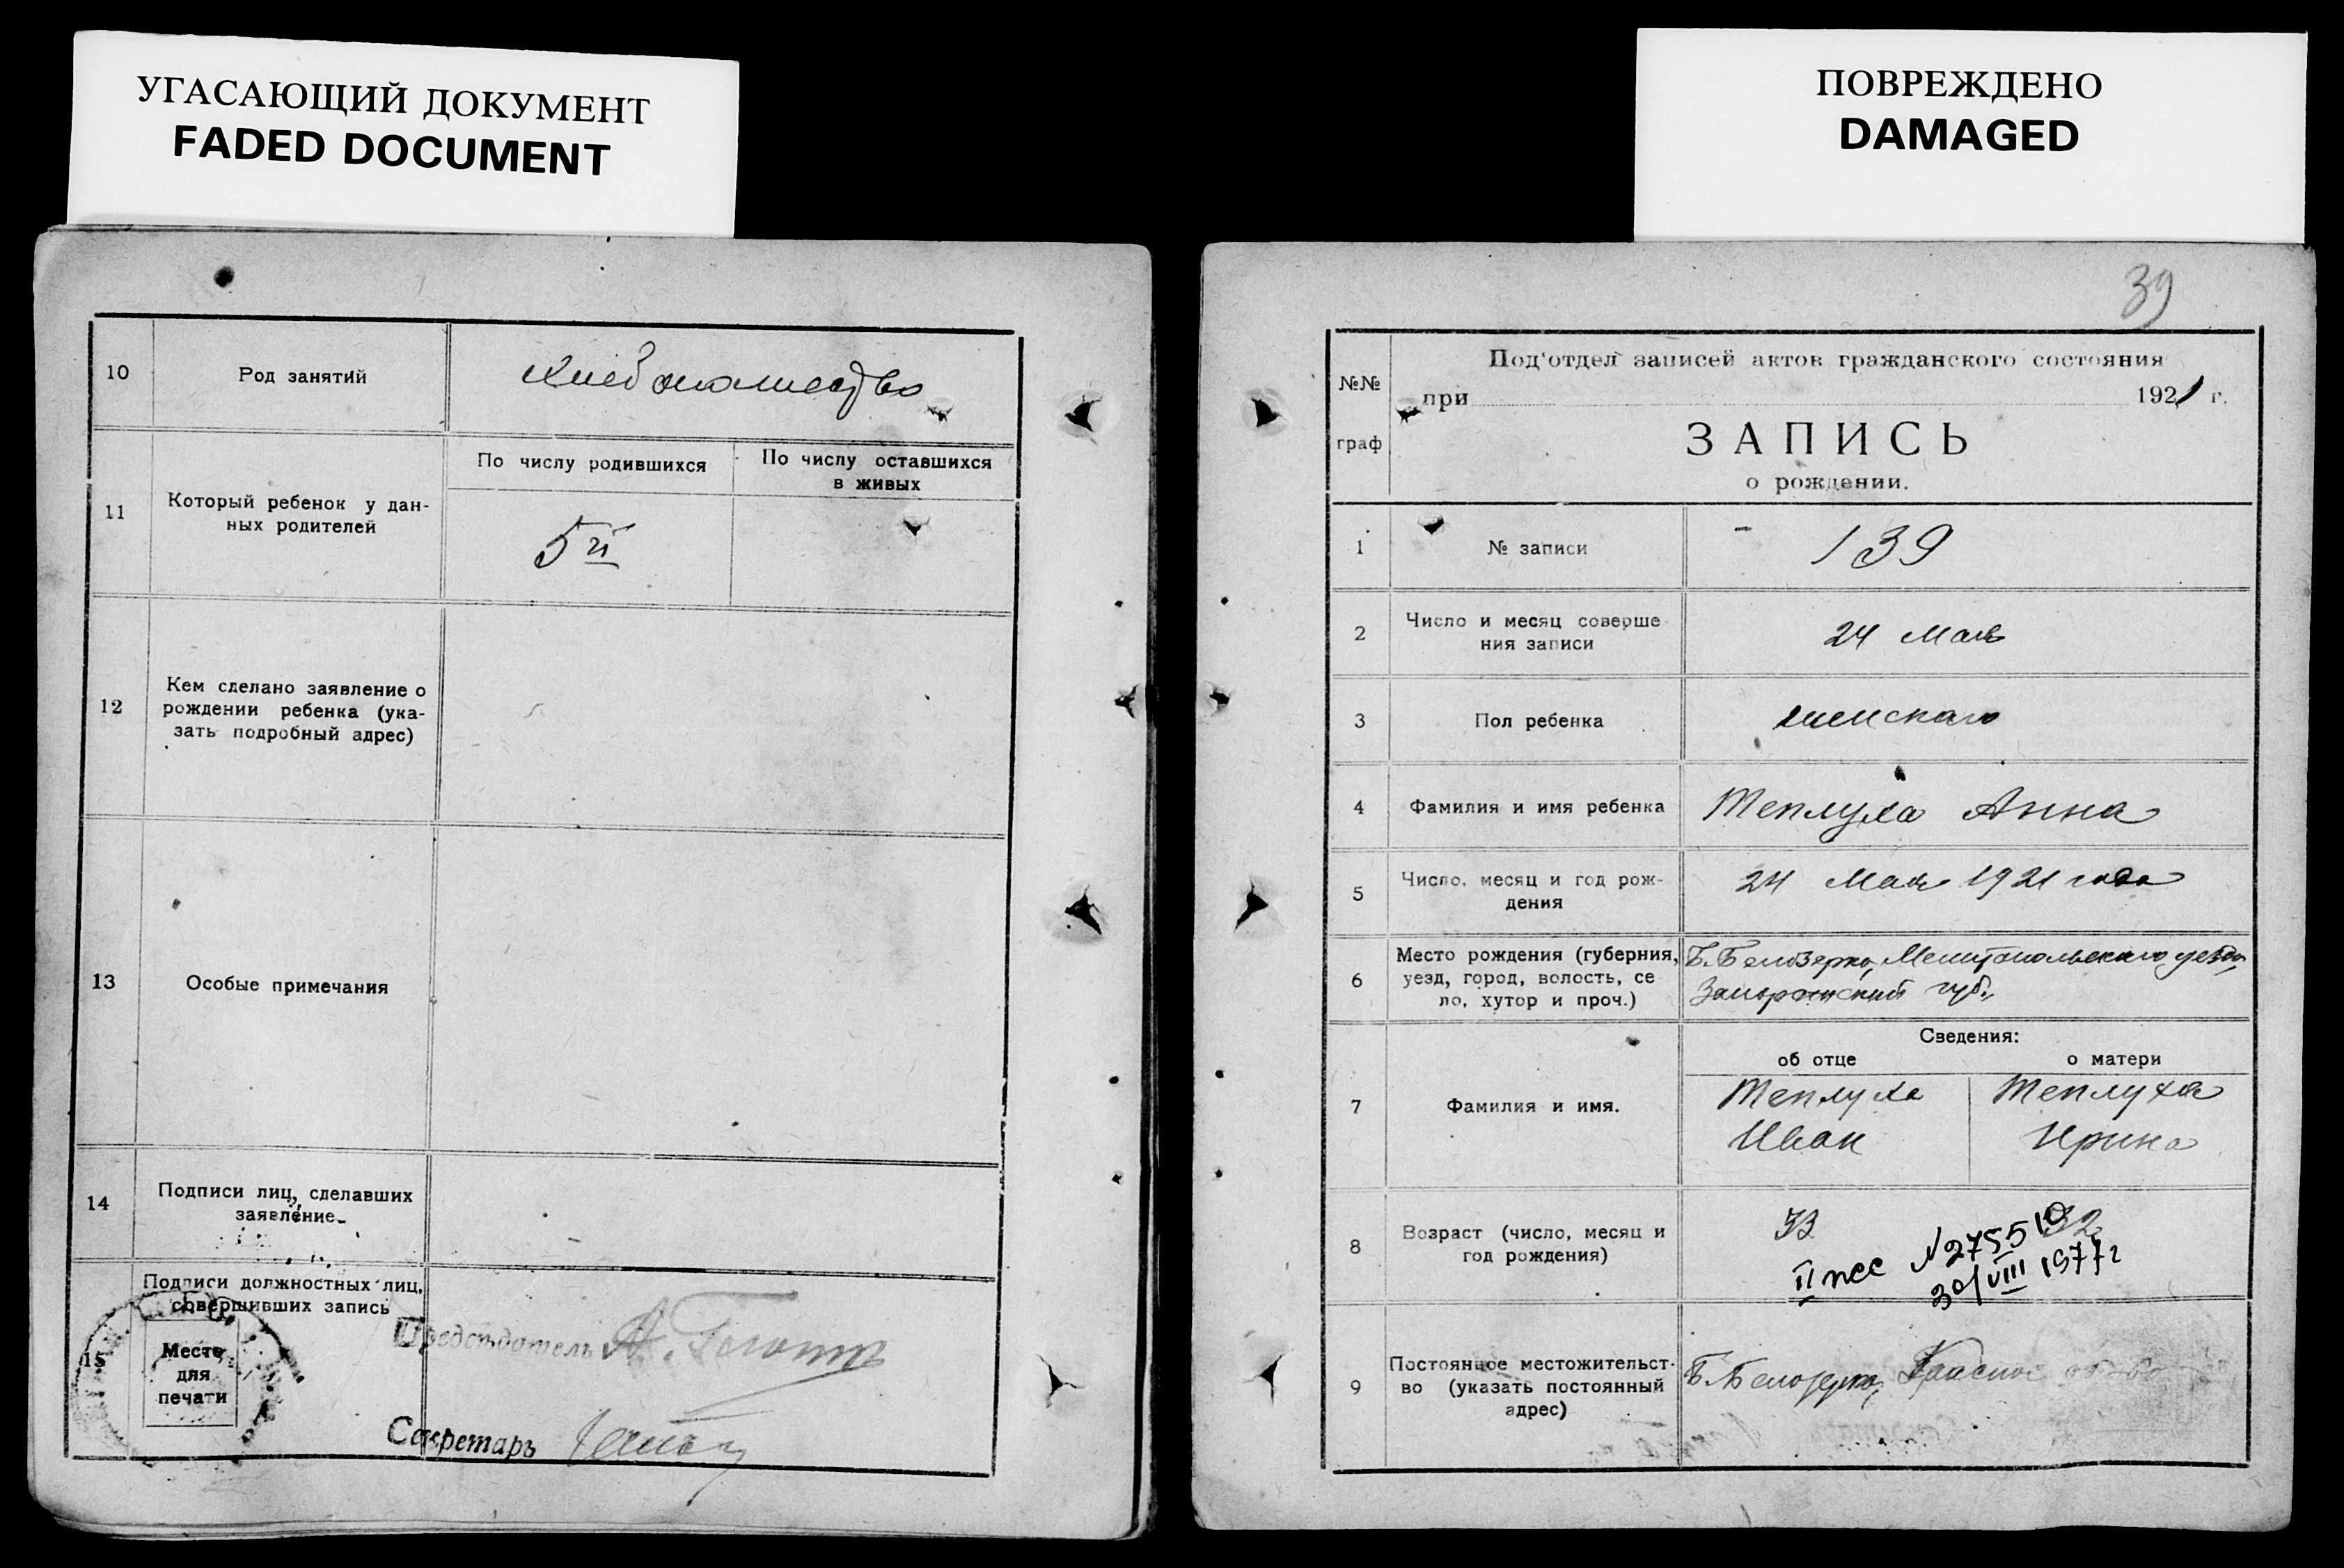 УГАСАЮЩИЙ ДОКУМЕНТ
FADED DOCUMENT
10
Род занятий
11
Который ребенок у дан-
ных родителей
По числу родившихся
5й
По числу оставшихся
в живых
12
Кем сделано заявление о
рождении ребенка (ука-
зать подробный адрес)
13
Особые примечания
14
Подписи лиц, сделавших
заявление
15
Подписи должностных лиц,
совершивших запись
Место
для
печати
Председатель А.
Секретарь
ПОВРЕЖДЕНО
DAMAGED
39
№№
граф
Под'отдел записей актов гражданского состояния
при 1921 г.
ЗАПИСЬ
о рождении.
1
№ записи
139
2
Число и месяц соверше
ния записи
24 Мая
3
Пол ребенка
женскаго
4
Фамилия и имя ребенка
Теплуха Анна
5
Число, месяц и год рож-
дения
24 Мая 1921 года
6
Место рождения (губерния,
уезд, город, волость, се
ло, хутор и проч.)
Б. Белозерка, Мелитопольскаго уезда,
губ.
Сведения:
об отце
о матери
7
Фамилия и имя.
Теплуха
Иван
Теплуха
Ирина
8
Возраст (число, месяц и
год рождения)
33
32
II № 275510
30/VIII 1977г
9
Постоянное местожительст-
во (указать постоянный
адрес)
Б. Белозерка,